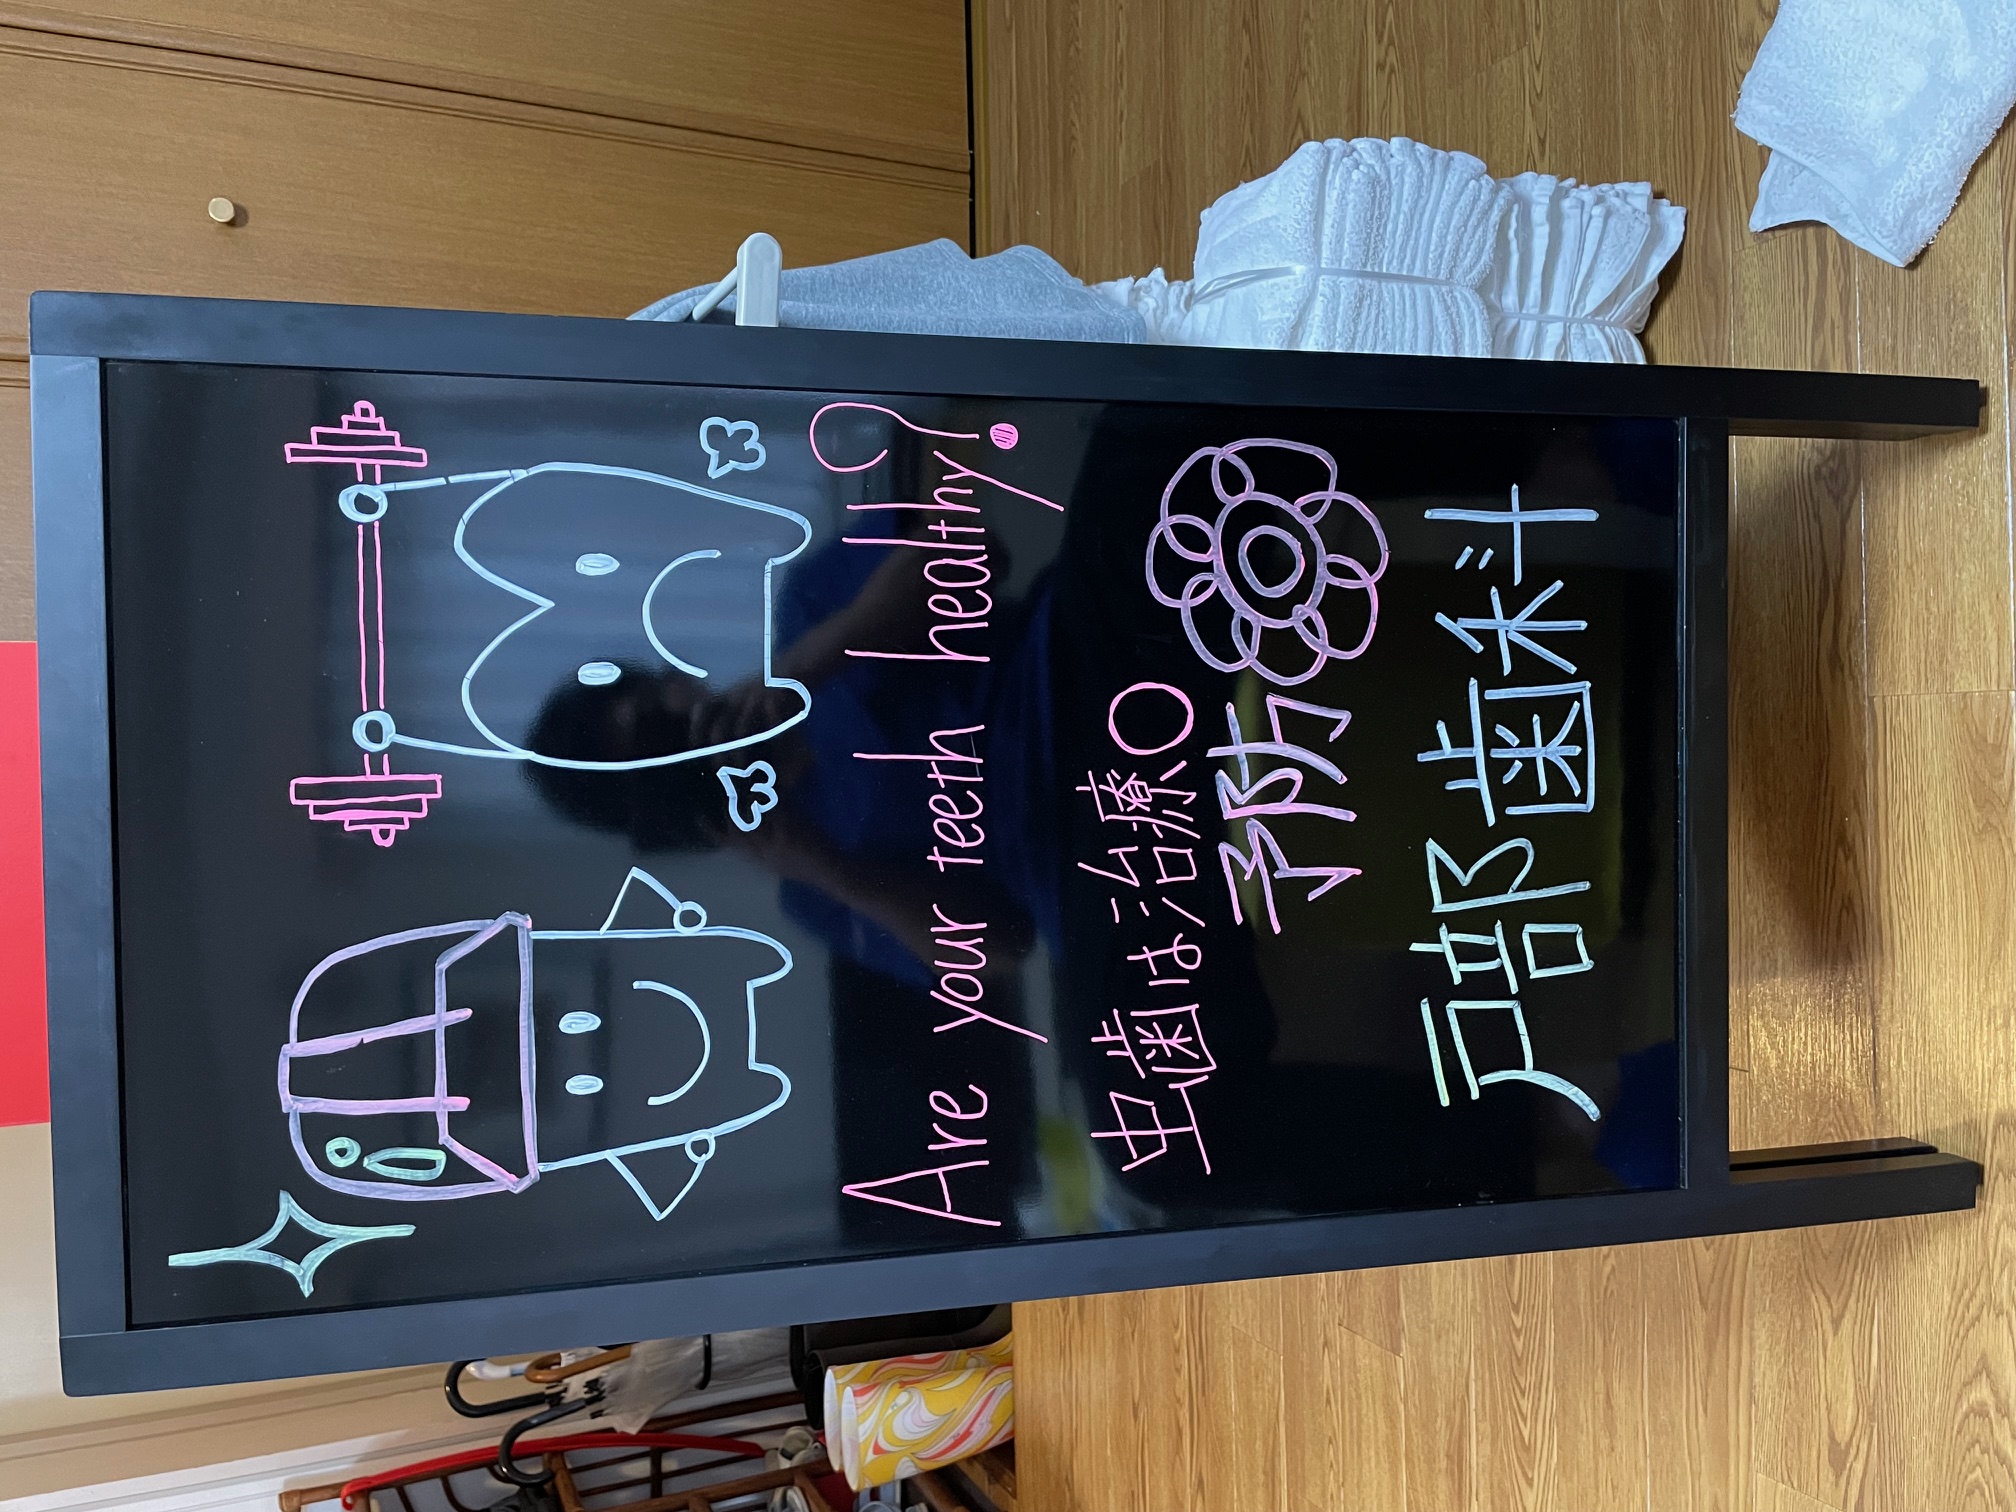 Are your teeth healthy?
虫歯は治療○
予防
戸部歯科